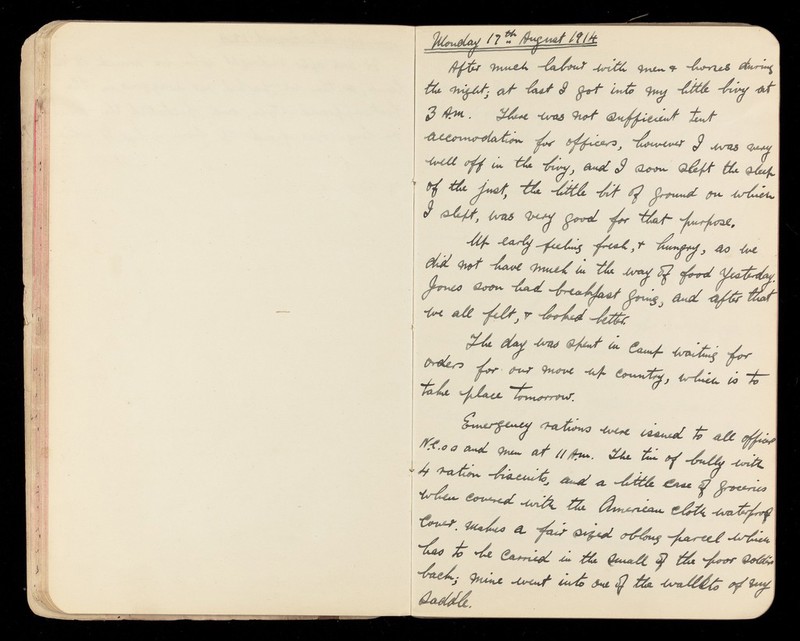 Monday 17th August 1914
After much labour with men & horses during
the night; at last I got into my little bivy at
3 Am. There was not sufficient tent
accomodation for officers, however I was very
well off in the bivy, and I soon slept the sleep
of the just, the little bit of ground on which
I slept, was very good for that purpose.
Up early feeling fresh, & hungry, as we
did not have much in the way of food yesterday.
Jones soon had breakfast going, and after that
we all felt, & looked better.
The day was spent in Camp waiting for
orders for our move up country, which is to
take place tomorrow.
Emergency rations were issued to all officers
N.C.o s and men at 11 Am. The tin of bully with
4 ration biscuits, and a little case of groceries
when covered with the American cloth waterproof
cover. makes a fair sized oblong parcel which
has to be carried in the small of the poor soldiers
back; mine went into one of the walllets of my
saddle.